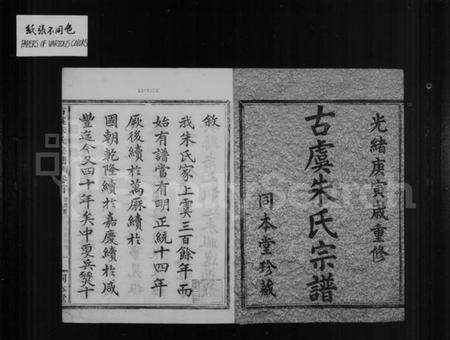 紙張不同色
PAPERS OF VARIOUS COLORS
光緒庚寅歲重修
古虞朱氏宗譜
同本堂珍藏
敘
我朱氏家上虞三百餘年而
始有譜當有明正統十四年
厥後續於萬厯續於
國朝乾隆續於嘉慶續於咸
豐迄今又四十年矣中更兵燹十
FamilySearch